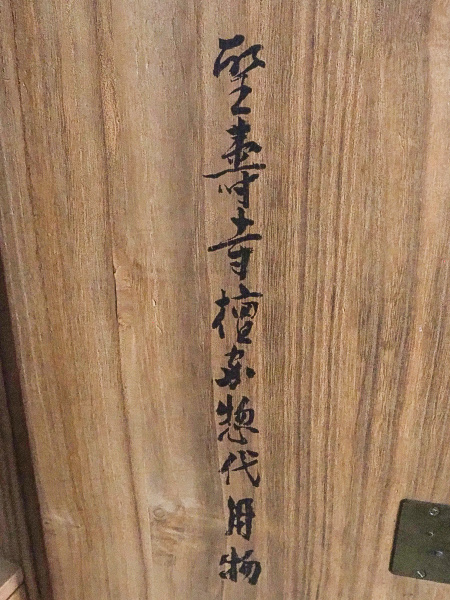 聖壽寺檀家惣代用物